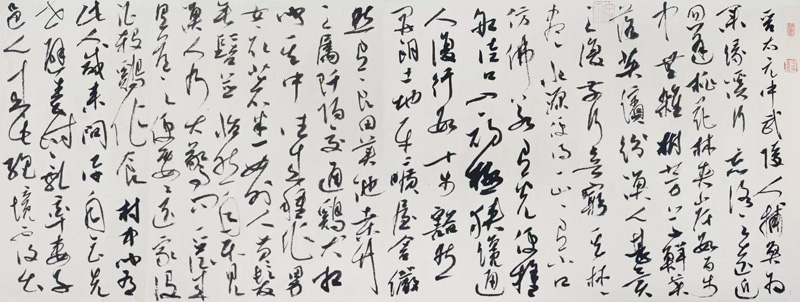 晉太元中武陵人捕魚為
業緣溪行忘路之遠近
忽逢桃花林夾岸數百步
中無雜樹芳草鮮美
落英繽紛漁人甚異
之復前行欲窮其林林
盡水源便得一山山有小口
仿佛若有光便捨
船從口入初極狹纔通
人復行數十步豁然
開朗土地平曠屋舍儼
然有良田美池桑竹
之屬阡陌交通雞犬相
聞其中往來種作男
女衣著悉如外人黃髮
垂髫並怡然自樂見
漁人乃大驚問所從來
具答之便要還家設
酒殺雞作食村中聞有
此人咸來問訊自云先
世避秦時亂率妻子
邑人來此絕境不復出